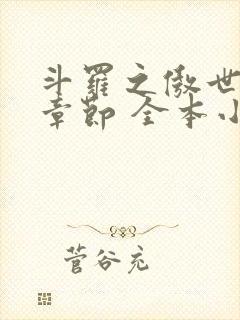 斗羅之傲世
章節 全本小
菅谷充